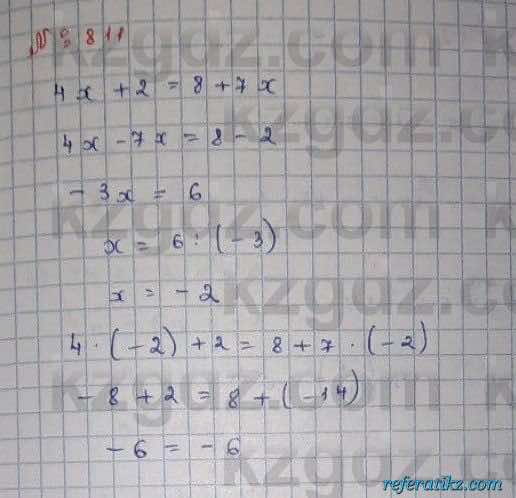 № 811
4x + 2 = 8 + 7x
4x - 7x = 8 - 2
- 3x = 6
x = 6 : (- 3)
x = - 2
4 · (- 2) + 2 = 8 + 7 · (- 2)
- 8 + 2 = 8 + (- 14)
- 6 = - 6
kzgdz.com
referatikz.com